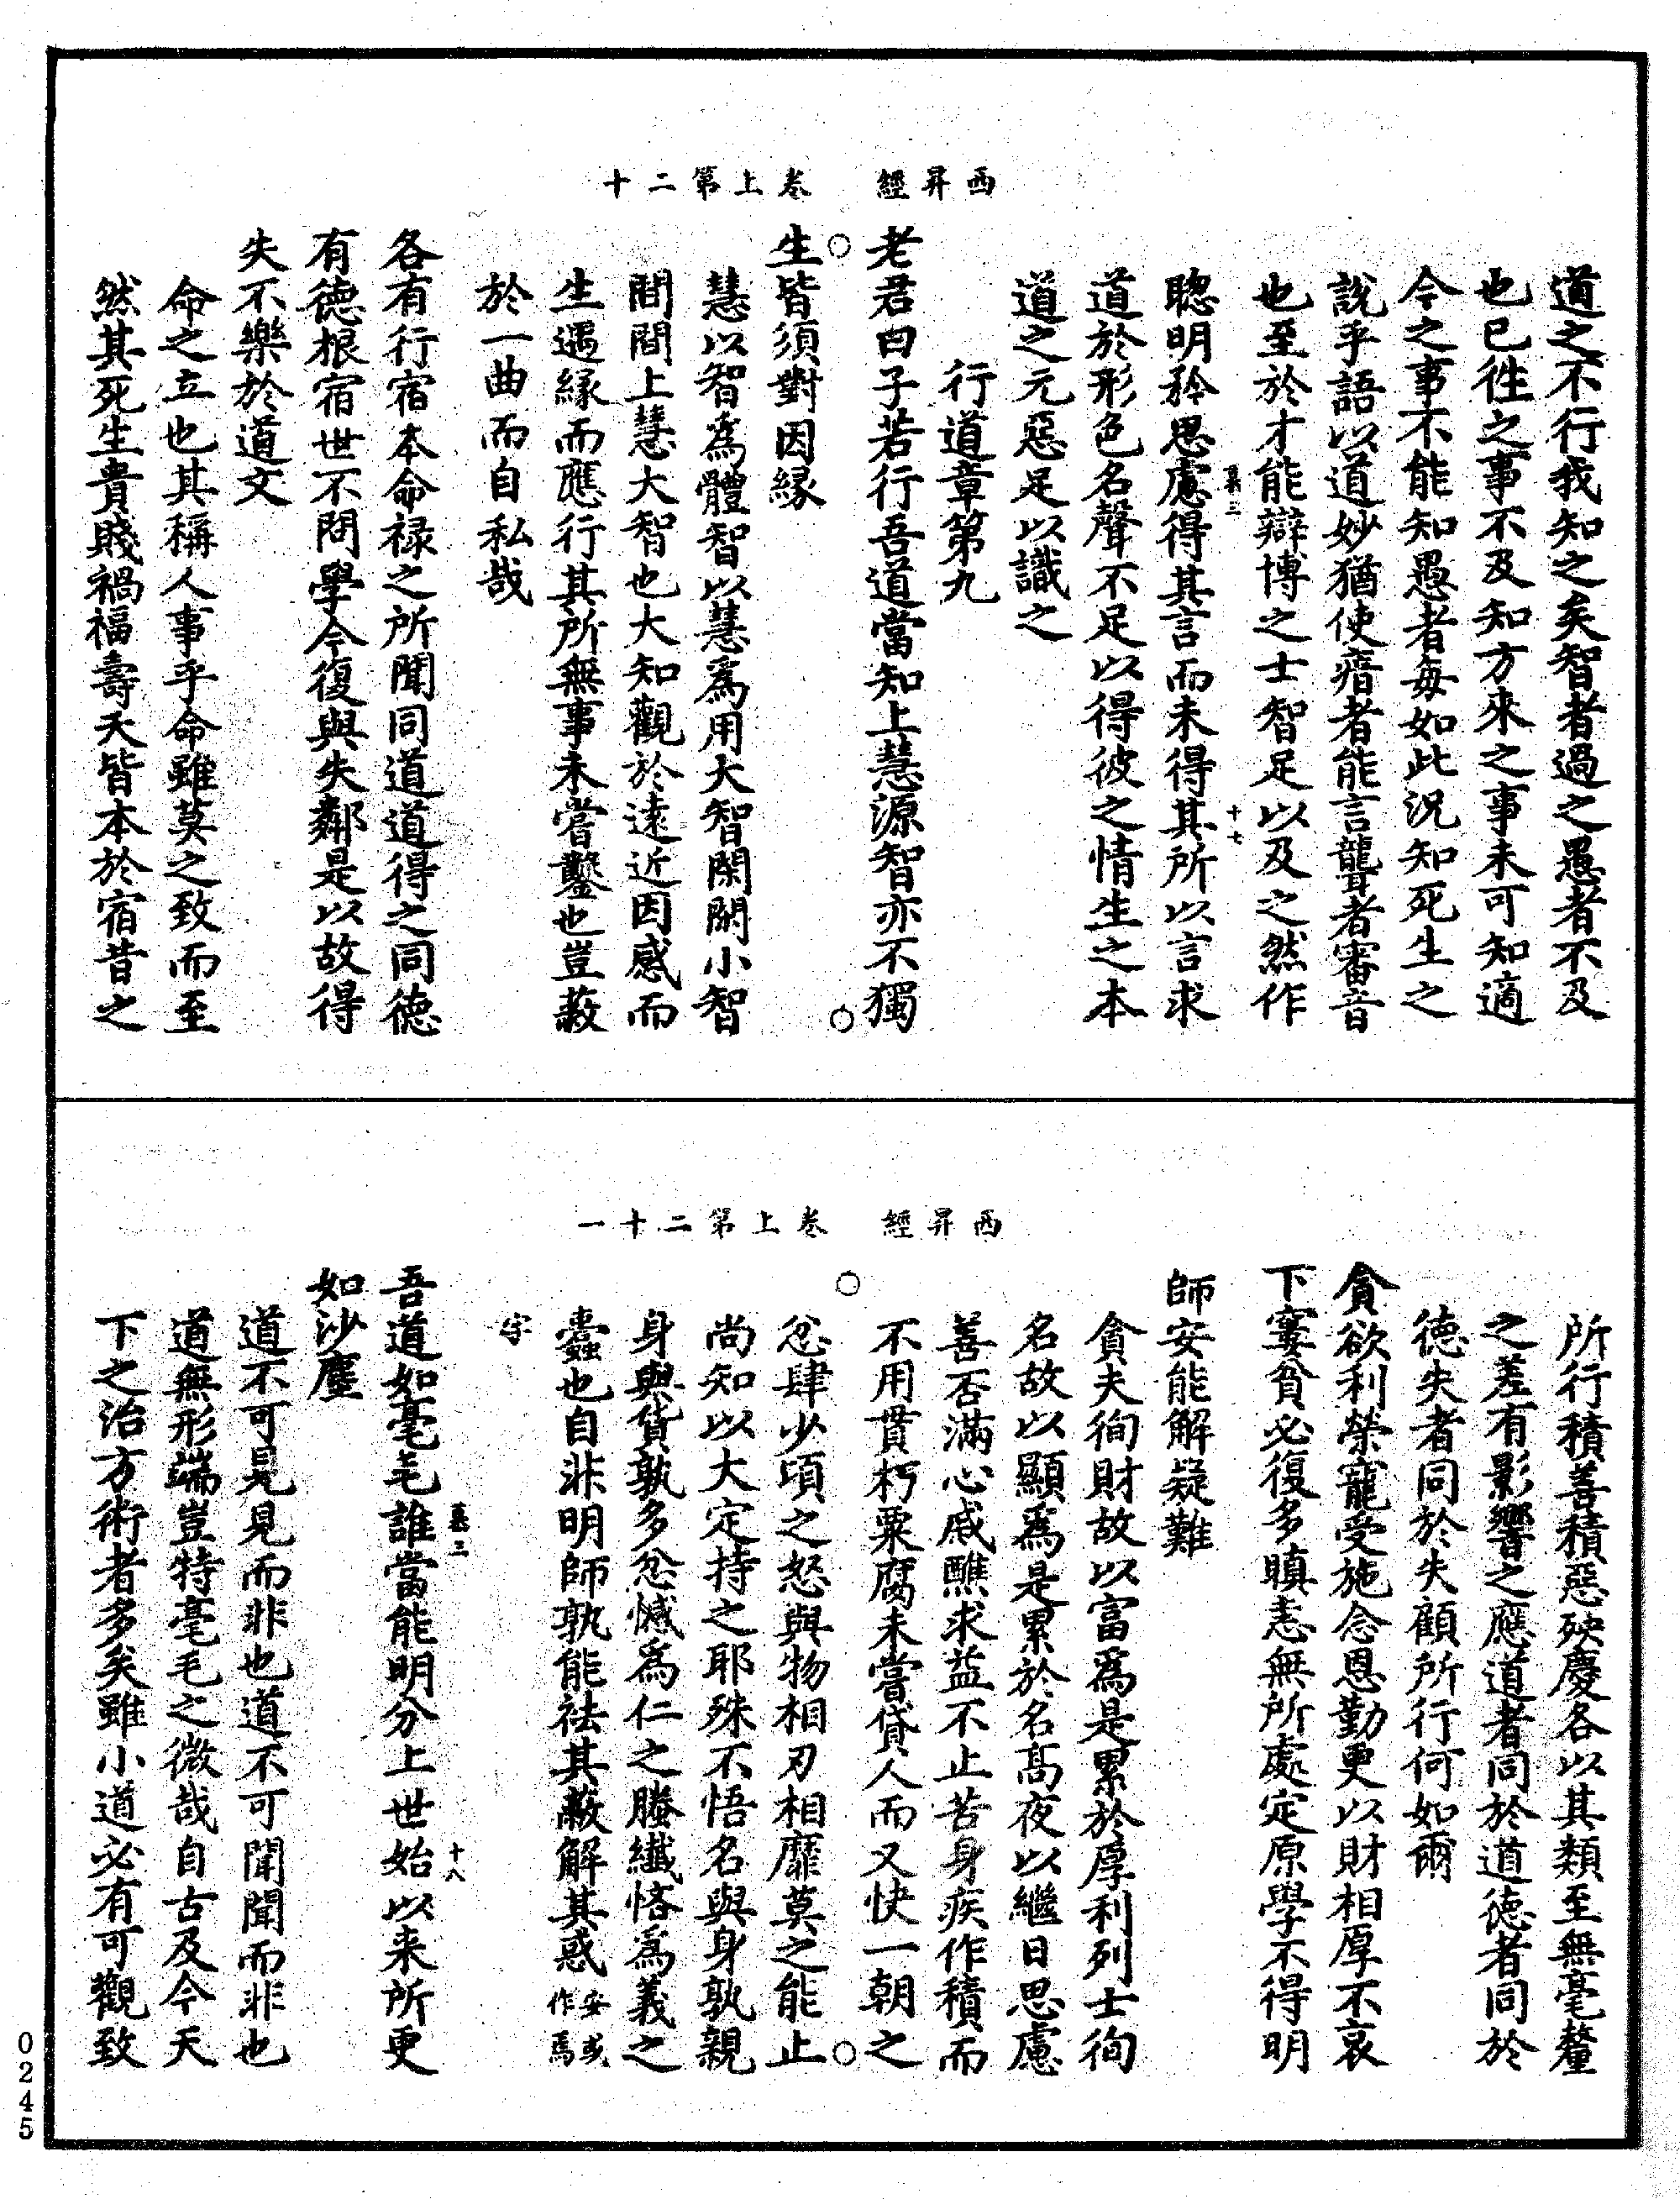 西昇經 卷上第二十
道之不行我知之矣智者過之愚者不及
也已徃之事不及知方來之事未可知適
今之事不能知愚者每如此況知死生之
說乎語以道妙猶使瘖者能言聾者審音
也至於才能辯博之士智足以及之然作
慕三 十七
聦明矜思慮得其言而未得其所以言求
道於形色名聲不足以得彼之情生之本
道之元惡足以識之
行道章第九
老君曰子若行吾道當知上慧源智亦不獨
生皆須對因緣
慧以智爲體智以慧爲用大智閑閑小智
間間上慧大智也大知觀於遠近因感而
生遇緣而應行其所無事未嘗鑿也豈蔽
於一曲而自私哉
各有行宿本命禄之所聞同道道得之同德
有德根宿世不問學今復與失鄰是以故得
失不樂於道文
命之立也其稱人事乎命雖莫之致而至
然其死生貴賤禍福壽夭皆本於宿昔之
西昇經 卷上第二十一
所行積善積惡殃慶各以其類至無毫釐
之差有影響之應道者同於道德者同於
德失者同於失顧所行何如爾
貪欲利榮寵受施念恩勤更以財相厚不哀
下窶貧必復多瞋恚無所處定原學不得明
師安能解疑難
貪夫徇財故以富爲是累於厚利列士徇
名故以顯爲是累於名高夜以繼日思慮
善否滿心戚醮求益不止苦身疾作積而
不用貫朽粟腐未嘗貸人而又快一朝之
忿肆少頃之怒與物相刃相靡莫之能止
尚知以大定持之耶殊不悟名與身孰親
身與貨孰多忿憾爲仁之螣纖悋爲義之
蠹也自非明師孰能祛其蔽解其惑安或作焉
字
慕三 十八
吾道如毫毛誰當能明分上世始以来所更
如沙塵
道不可見見而非也道不可聞聞而非也
道無形端豈特毫毛之微哉自古及今天
下之治方術者多矣雖小道必有可觀致
0245